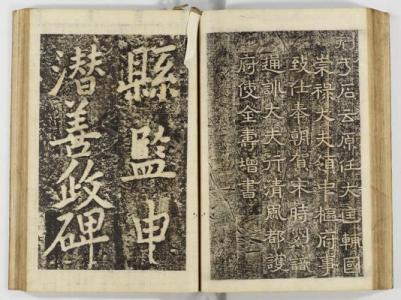 云原任大匡輔國
崇禄大夫領中樞府事
致仕奉朝賀宋時烈識
通訓大夫行清風都護
府使金壽增書
縣監申
潛善政碑